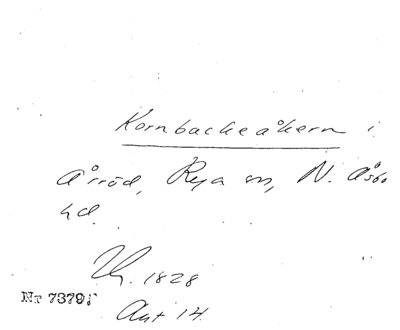 Kornbackeåkern i
Årröd, Rya sn, N. Åsbo
hd.
1828
Nr 7379
Akt 14.